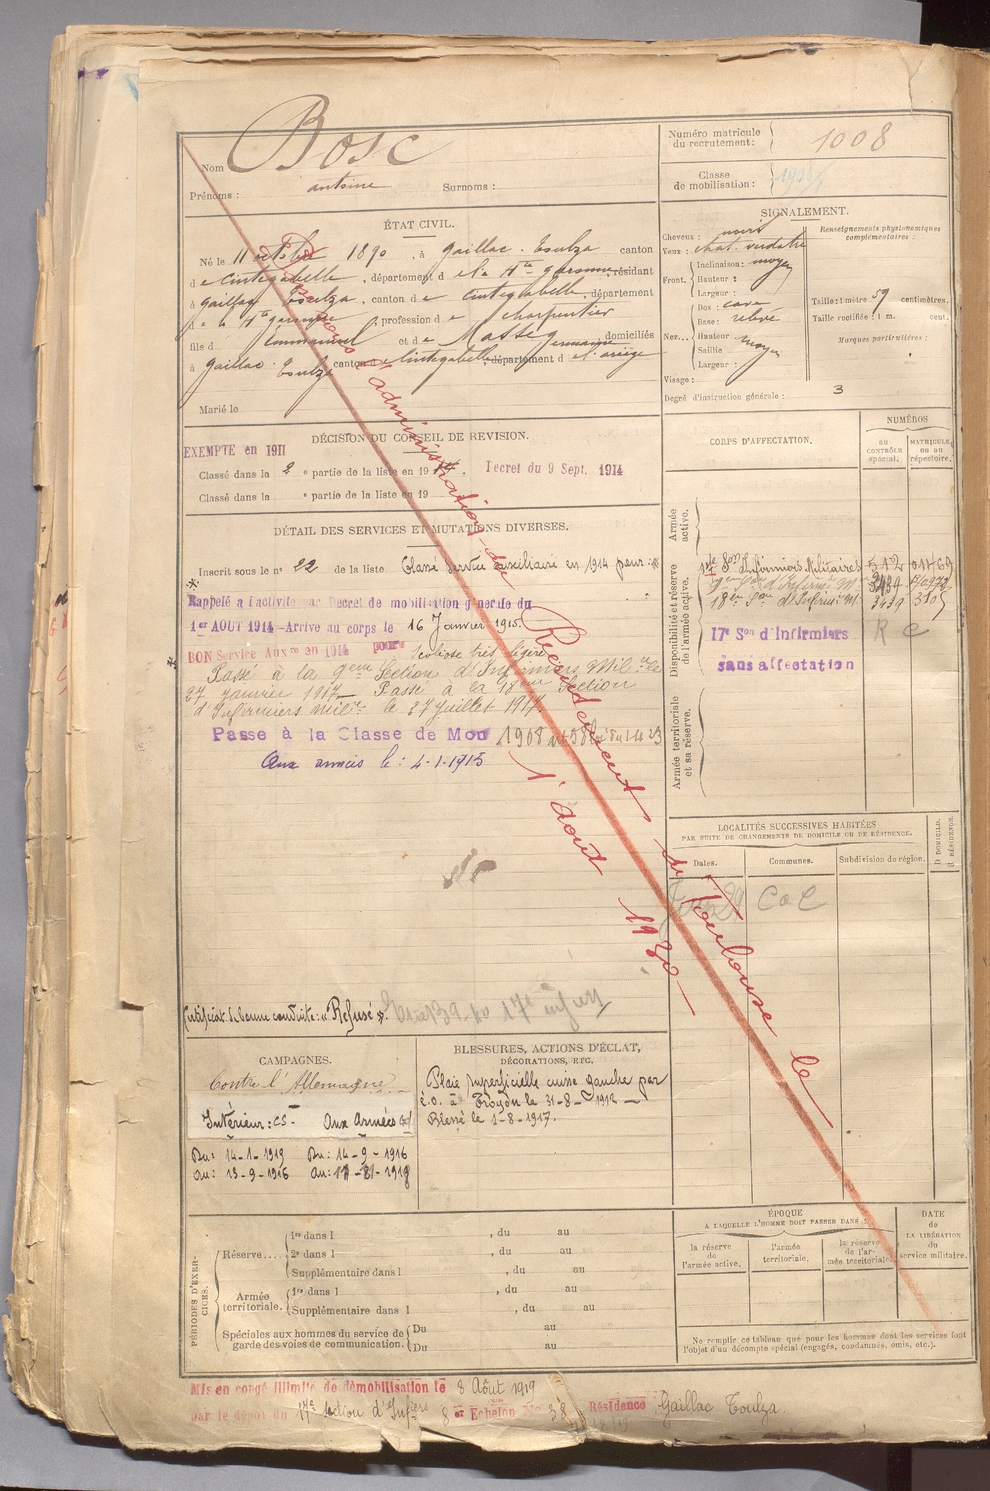 Nom Bosc
Prénoms : antoine Surnoms :
Numéro matricule du recrutement : 1008
Classe de mobilisation : 1908
ÉTAT CIVIL.
Né le 11 octobre 1890, à gaillac. Toulza canton
de Cintegabelle, département de la Hte garonne, résidant
à gaillac Toulza, canton de Cintegabelle, département
de la Hte garonne, profession de charpentier
fils d' Emmanuel et de Massé germaine domiciliés
à gaillac. Toulza canton de Cintegabelle, département d
Marié le
SIGNALEMENT.
Cheveux : noirs
Yeux : chat. verdatre
Front. Inclinaison : moyen
Hauteur :
Largeur :
Nez... Dos : cave
Base : releve
Hauteur moyen
Saillie
Largeur :
Visage :
Degré d'instruction générale : 3
Renseignements physionomiques complémentaires :
Taille : 1 mètre 59 centimètres.
Taille rectifiée : 1 m. cent.
Marques particulières :
DÉCISION DU CONSEIL DE REVISION.
EXEMPTE en 1911
Classé dans la 2e partie de la liste en 1914. Decret du 9 Sept. 1914
Classé dans la e partie de la liste en 19
DÉTAIL DES SERVICES ET MUTATIONS DIVERSES.
Inscrit sous le no 22 de la liste Classé Service auxiliaire en 1914 pour :*
Rappelé à l'activité par Decret de mobilisation générale du
1er AOUT 1914 – Arrive au corps le 16 Janvier 1915.
* BON Service Auxre en 1914 pour Scoliose très légère
Passé à la 9eme Section d'Infirmiers Milres le
27 janvier 1917 – Passé à la 18eme Section
d'Infirmiers milre le 27 juillet 1917.
Passe à la Classe de Mob 1908
Aux armées le : 4-1-1915
Certificat de bonne conduite : "Refusé".
CORPS D'AFFECTATION.
NUMÉROS
AU CONTRÔLE spécial.
MATRICULE ou au répertoire.
Armée active.
Disponibilité et réserve de l'armée active.
Son Infirmiers Militaires 512 01469
9eme Son d'Infirmi. M.
18eme Son d'Infirmi. M. 3439
17e Son d'Infirmiers
sans affectation
R C
Armée territoriale et sa réserve.
LOCALITÉS SUCCESSIVES HABITÉES
PAR SUITE DE CHANGEMENTS DE DOMICILE OU DE RÉSIDENCE.
Dates. Communes. Subdivision de région. D. DOMICILE. R. RÉSIDENCE.
CAMPAGNES.
Contre l'Allemagne
Intérieur : CS - Aux Armées
Du : 14-1-1919 Du : 14-9-1916
au : 13-9-1916
BLESSURES, ACTIONS D'ÉCLAT,
DÉCORATIONS, ETC.
Plaie superficielle cuisse gauche par
é.o. à Troyon le 31-8-
Blessé le 1-8-1917.
PÉRIODES D'EXERCICES.
Réserve.... 1re dans l , du au
2e dans l , du au
Supplémentaire dans l , du au
Armée territoriale. 1re dans l , du au
Supplémentaire dans l , du au
Spéciales aux hommes du service de garde des voies de communication. Du au
Du au
ÉPOQUE
A LAQUELLE L'HOMME DOIT PASSER DANS :
la réserve de l'armée active.
l'armée territoriale.
la réserve de l'armée territoriale.
DATE de LA LIBÉRATION du service militaire.
Ne remplir ce tableau que pour les hommes dont les services font
l'objet d'un décompte spécial (engagés, condamnés, omis, etc.).
l'administration du Recrutement de Toulouse le
1er août 1930
Mis en congé illimité de démobilisation le 8 Août 1919
par le dépôt du 17e section d'Infiers 8e Echelon No 38 Résidence Gaillac Toulza.